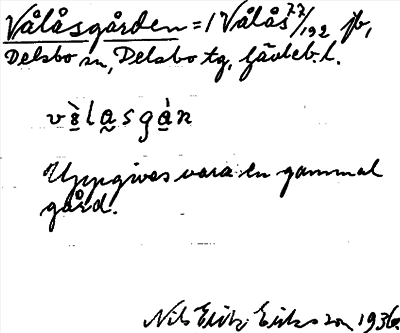 Vålåsgården = 1 Vålås 77/192 jb,
Delsbo sn, Delsbo tg, Gävleb. l.
vås̀lasgàn
Uppgives vara en gammal
gård.
Nils Erik Eriksson 1936.